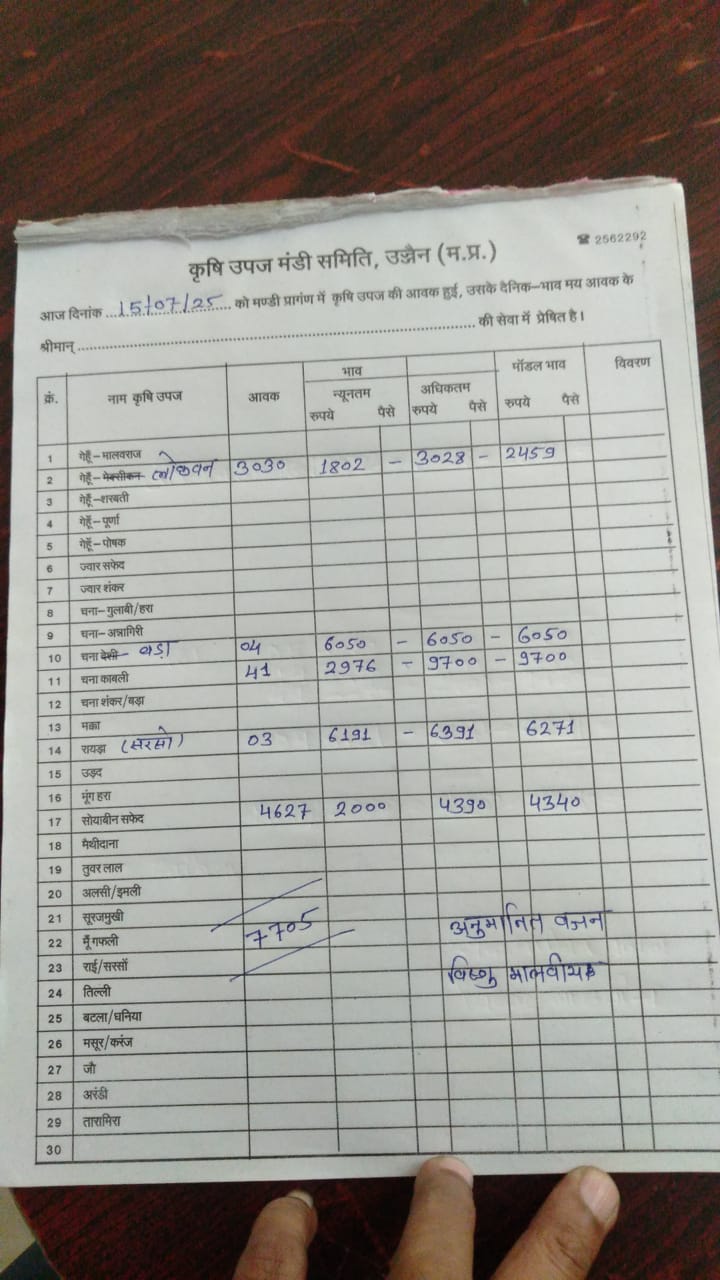 ☎ 2562292
कृषि उपज मंडी समिति, उज्जैन (म.प्र.)
आज दिनांक ...15/07/25... को मण्डी प्रागंण में कृषि उपज की आवक हुई, उसके दैनिक–भाव मय आवक के
श्रीमान् ........................ की सेवा में प्रेषित है।
क्रं. नाम कृषि उपज आवक भाव मॉडल भाव विवरण
न्यूनतम अधिकतम
रुपये पैसे रुपये पैसे रुपये पैसे
1 गेहूँ–मालवराज
2 गेहूँ–मेक्सीकन लोकवन 3030 1802 – 3028 – 2459
3 गेहूँ–शरबती
4 गेहूँ–पूर्णा
5 गेहूँ–पोषक
6 ज्वार सफेद
7 ज्वार शंकर
8 चना–गुलाबी/हरा
9 चना–अन्नागिरी
10 चना देशी – बड़ा 04 6050 – 6050 – 6050
11 चना काबली 41 2976 – 9700 – 9700
12 चना शंकर/बड़ा
13 मक्का
14 रायड़ा (सरसो) 03 6191 – 6391 6271
15 उड़द
16 मूंग हरा
17 सोयाबीन सफेद 4627 2000 4390 4340
18 मैथीदाना
19 तुवर लाल
20 अलसी/इमली
21 सूरजमुखी
22 मूँगफली 7705 अनुमानित वजन
23 राई/सरसों
24 तिल्ली विष्णु मालवीय
25 बटला/धनिया
26 मसूर/करंज
27 जौ
28 अरंडी
29 तारामिरा
30